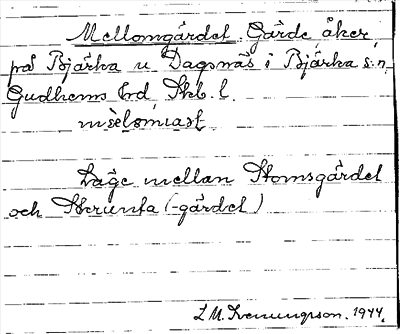 Mellomgärdet. Gärde åker,
på Bjärka u. Dagsnäs i Bjärka s:n,
Gudhems hd, Skb. l.
Läge mellan Stomsgärdet
och Strumfa (-gärdet)
L. M. 1944.